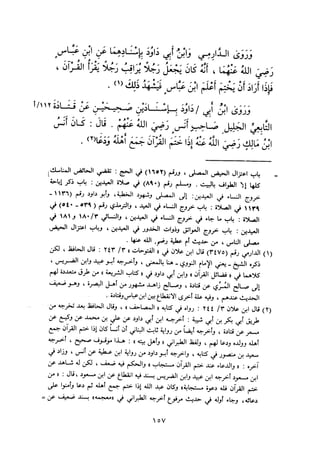 وَرَوَى الدَّارِمِي وَابْنُ أَبِي دَاوُدَ بِإِسْنَادِهِمَا عَنِ ابْنِ عَبَّاسٍ
رَضِيَ اللهُ عَنْهُمَا ، أَنَّهُ كَانَ يَجْعَلُ رَجُلًا يُرَاقِبُ رَجُلًا يَقْرَأُ القُرْآنَ ،
فَإِذَا أَرَادَ أَنْ يَخْتِمَ أَعْلَمَ ابْنَ عَبَّاسٍ فَيَشْهَدُ ذَلِكَ (١) .
وَرَوَى ابْنُ أَبِي / دَاوُدَ بِإِسْنَادَيْنِ صَحِيحَيْنِ عَنْ قَتَادَةَ ١١٢/أ
التَّابِعِيِّ الجَلِيلِ صَاحِبِ أَنَسٍ رَضِيَ اللهُ عَنْهُمْ . قَالَ : كَانَ أَنَسُ
ابْنُ مَالِكٍ رَضِيَ اللهُ عَنْهُ إِذَا خَتَمَ القُرْآنَ جَمَعَ أَهْلَهُ وَدَعَا(٢) .
= باب اعتزال الحيض المصلى ، ورقم (١٦٥٢) في الحج : تقضي الحائض المناسك
كلها إلا الطواف بالبيت . ومسلم رقم (٨٩٠) في صلاة العيدين : باب ذكر إباحة
خروج النساء في العيدين : إلى المصلى وشهود الخطبة ، وأبو داود رقم (١١٣٦ -
١١٣٩ في الصلاة : باب خروج النساء في العيد ، والترمذي رقم (٥٣٩ - ٥٤٠) في
الصلاة : باب ما جاء في خروج النساء في العيدين ، والنسائي ١٨٠/٣ و ١٨١ في
العيدين : باب خروج العواتق وذوات الخدور في العيدين ، وباب اعتزال الحيض
مصلى الناس ، من حديث أم عطية رضي الله عنها .
(١) الدارمي رقم (٣٤٧٥) قال ابن علان في « الفتوحات » ٢٤٣/٣ : قال الحافظ ، لكن
ذكره الشيخ - يعني الإمام النووي - هنا بالمعنى ، وأخرجه أبو عبيد وابن الضريس ،
كلاهما في « فضائل القرآن » وابن أبي داود في « كتاب الشريعة » من طرق متعددة لهم
إلى صالح المُرِّي عن قتادة ، وصالح زاهد مشهور من أهل البصرة ، وهو ضعيف
الحديث عندهم ، وفيه علة أخرى الانقطاع بين ابن عباس وقتادة .
(٢) قال ابن علان ٢٤٤/٣ : رواه في كتابه « المصاحف » ، وقال الحافظ بعد تخريجه من
طريق أبي بكر بن أبي شيبة : أخرجه ابن أبي داود عن علي بن محمد عن وكيع عن
مسعر عن قتادة ، وأخرجه أيضاً من رواية ثابت البناني أن أنساً كان إذا ختم القرآن جمع
أهله وولده ودعا لهم ، ولفظ الطبراني « وأهل بيته » : هذا موقوف صحيح ، أخرجه
سعيد بن منصور في كتابه ، وأخرجه أبو داود من رواية ابن عطية عن أنس ، وزاد في
آخره : « والدعاء عند ختم القرآن مستجاب » والحكم فيه ضعف ، لكن له شاهد عن
ابن مسعود أخرجه ابن عبيد وابن الضريس بسند فيه انقطاع عن ابن مسعود ، قال : « من
ختم القرآن فله دعوة مستجابة» وكان عبد الله إذا ختم جمع أهله ثم دعا وأمنوا على
دعائه ، وجاء أوله في حديث مرفوع أخرجه الطبراني في «معجمه» بسند ضعيف عن =
١٥٧